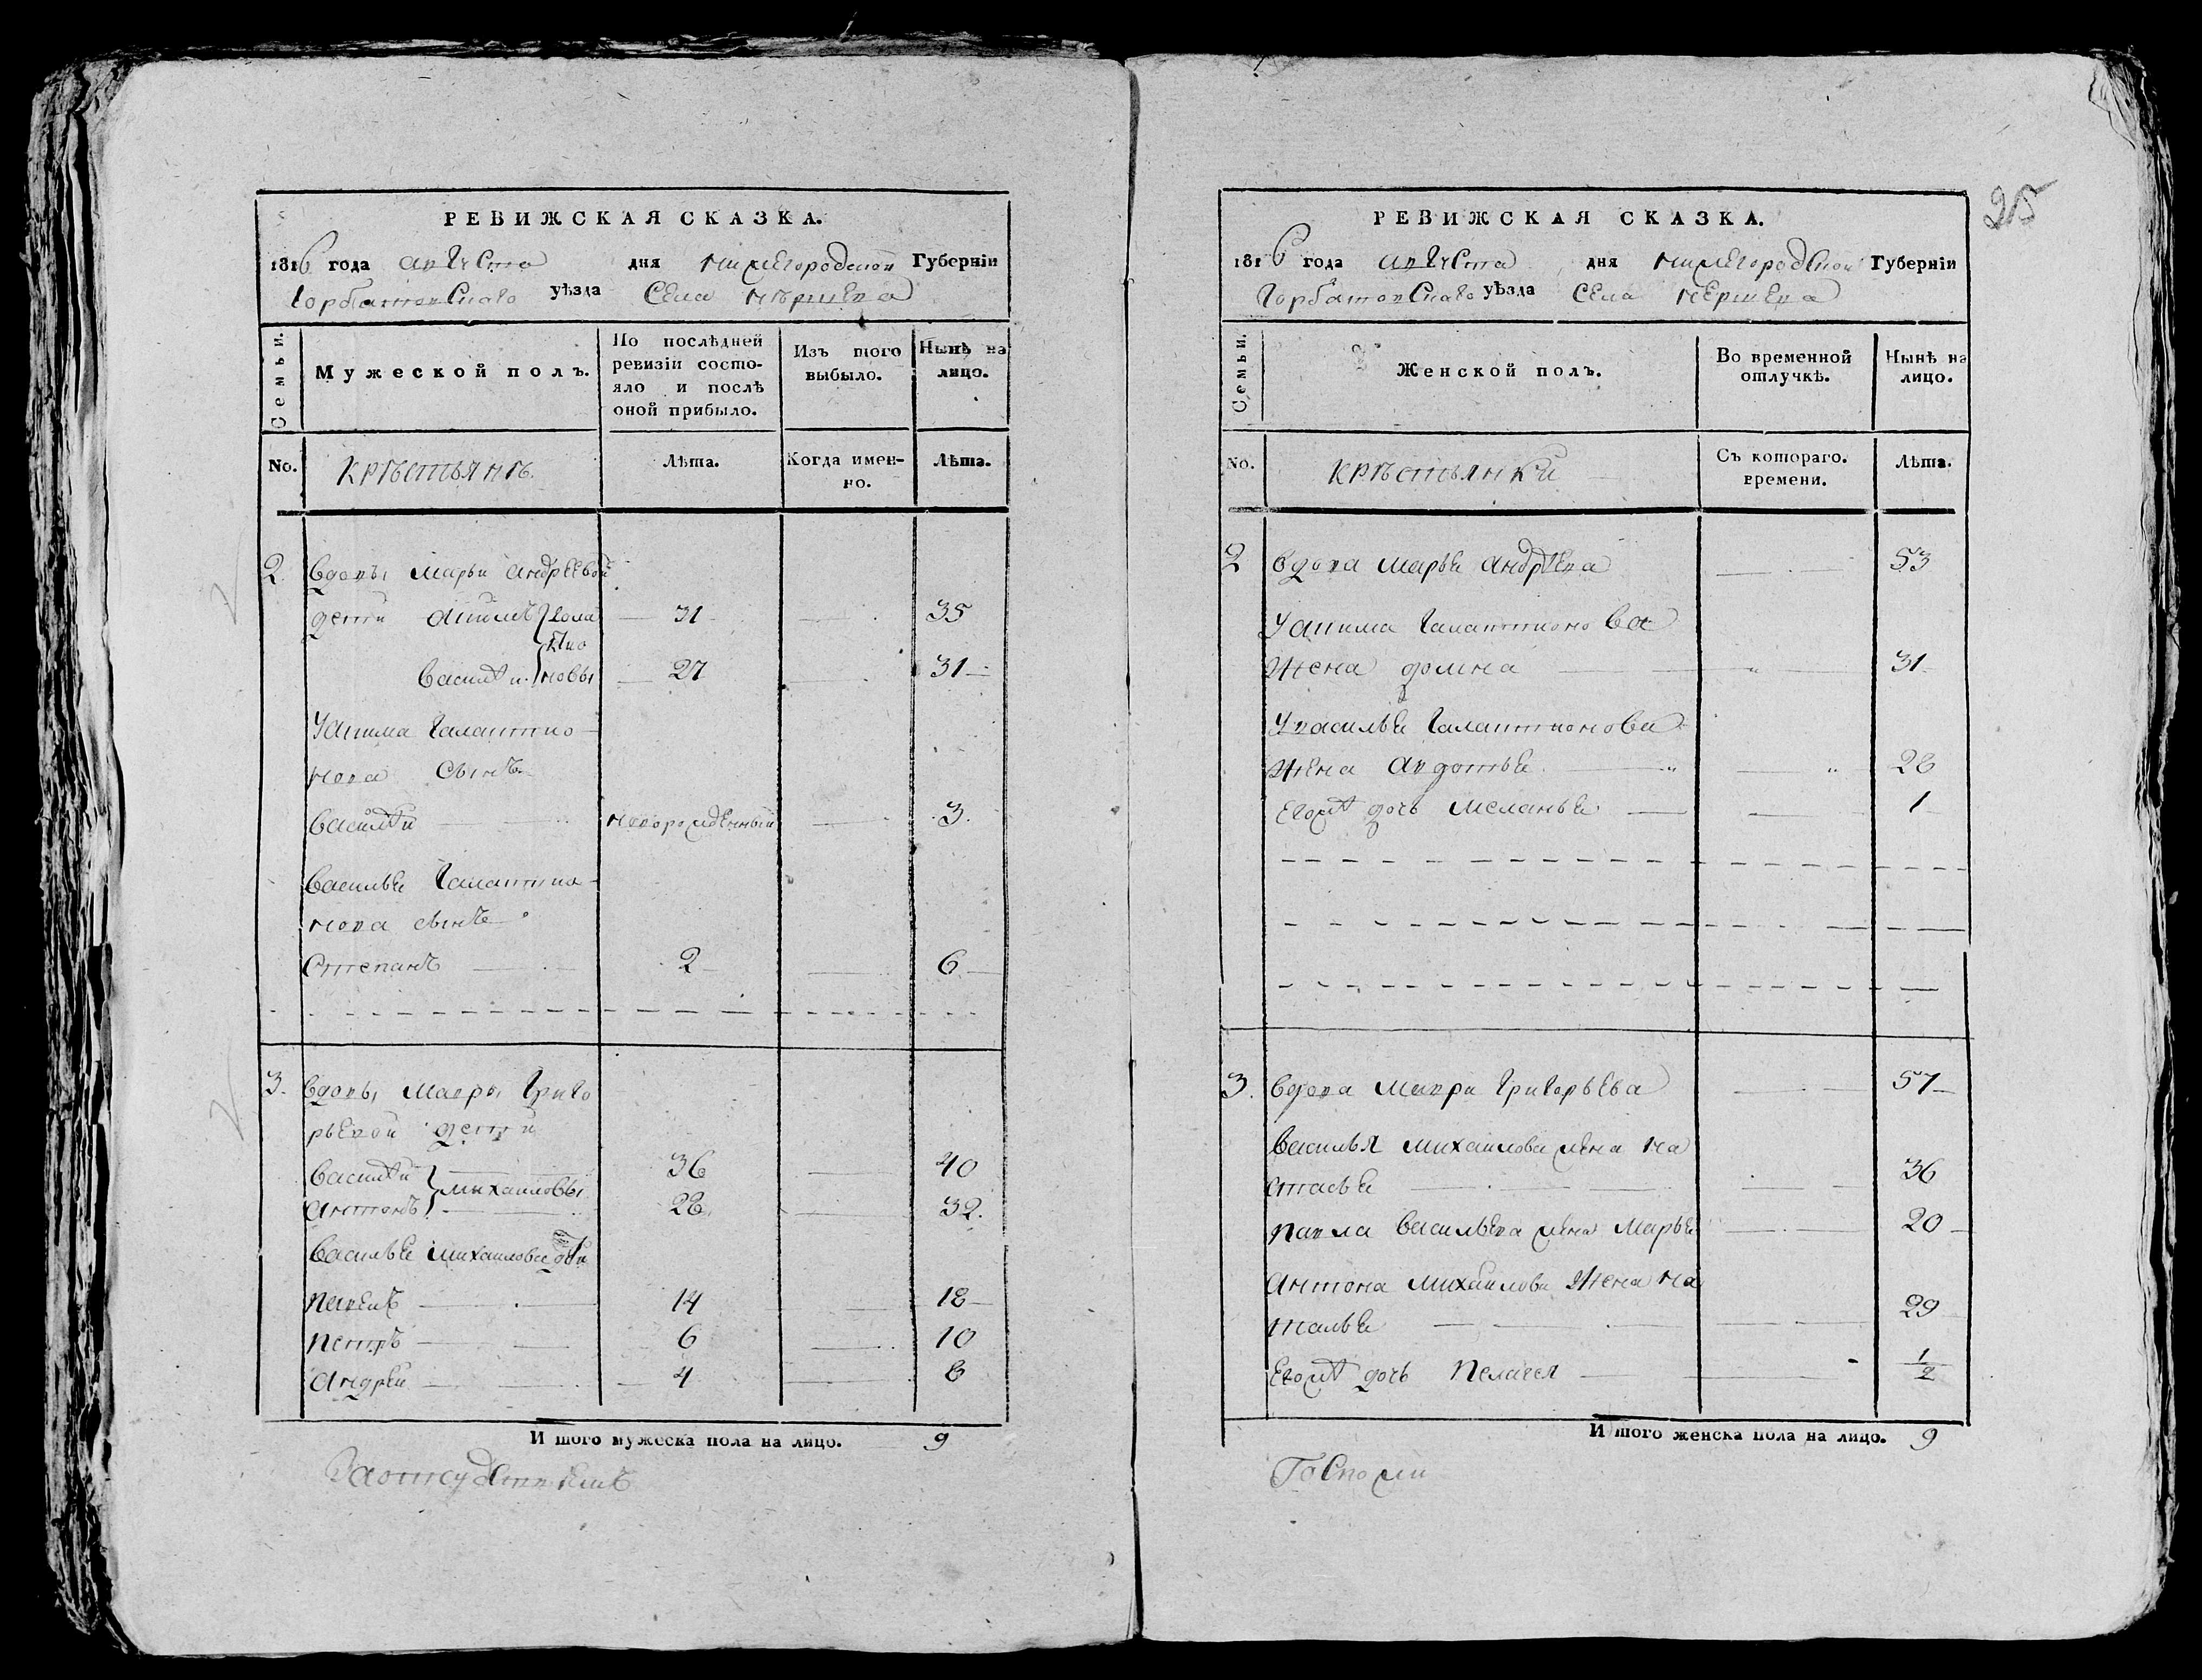 РЕВИЖСКАЯ СКАЗКА.
1816 года августа дня нижегородской Губерніи
Горбатовскаго уѣзда Села
Семьи.
Мужеской полъ.
По послѣдней ревизіи состояло и послѣ оной прибыло.
Изъ того выбыло.
Нынѣ на лицо.
No.
крѣстьянѣ
Лѣта.
Когда именно.
Лѣта.
2. вдовы Марьи андреевой
дети акимъ гала 31 35
ктіо
василей новы 27 31
Уакима галактио
нова сынъ
василей новорожденный 3
василья галактио
нова сынъ
степанъ 2 6
3. вдовы мавры григо
рьевой дети
василей михаиловы 36 40
антонъ 28 32
василья михаилова дети
павелъ 14 18
петръ 6 10
андрей 4 8
Итого мужеска пола на лицо. 9
25
РЕВИЖСКАЯ СКАЗКА.
1816 года августа дня нижегородской Губерніи
Горбатовскаго уѣзда Села
Семьи.
Женской полъ.
Во временной отлучкѣ.
Нынѣ на лицо.
No.
крѣстьянки
Съ котораго. времени.
Лѣта.
2 вдова марья андрѣева 53
Уакима галактионова
жена домна 31
Увасилья галактионова
жена авдотья 28
его дочь меланья 1
3. вдова мавра григорьева 57
василья михаилова жена на
стасья 36
павла васильева жена марья 20
антона михаилова жена на
талья 29
его дочь пелагея 1/2
Итого женска пола на лицо. 9